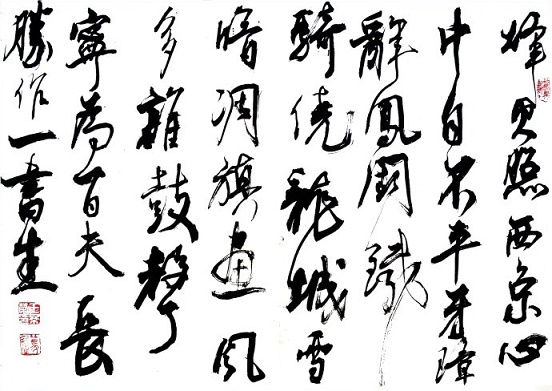 烽火照西京心
中自不平牙璋
辭鳳闕鐵
騎繞龍城雪
暗凋旗畫風
多雜鼓聲
寧為百夫長
勝作一書生